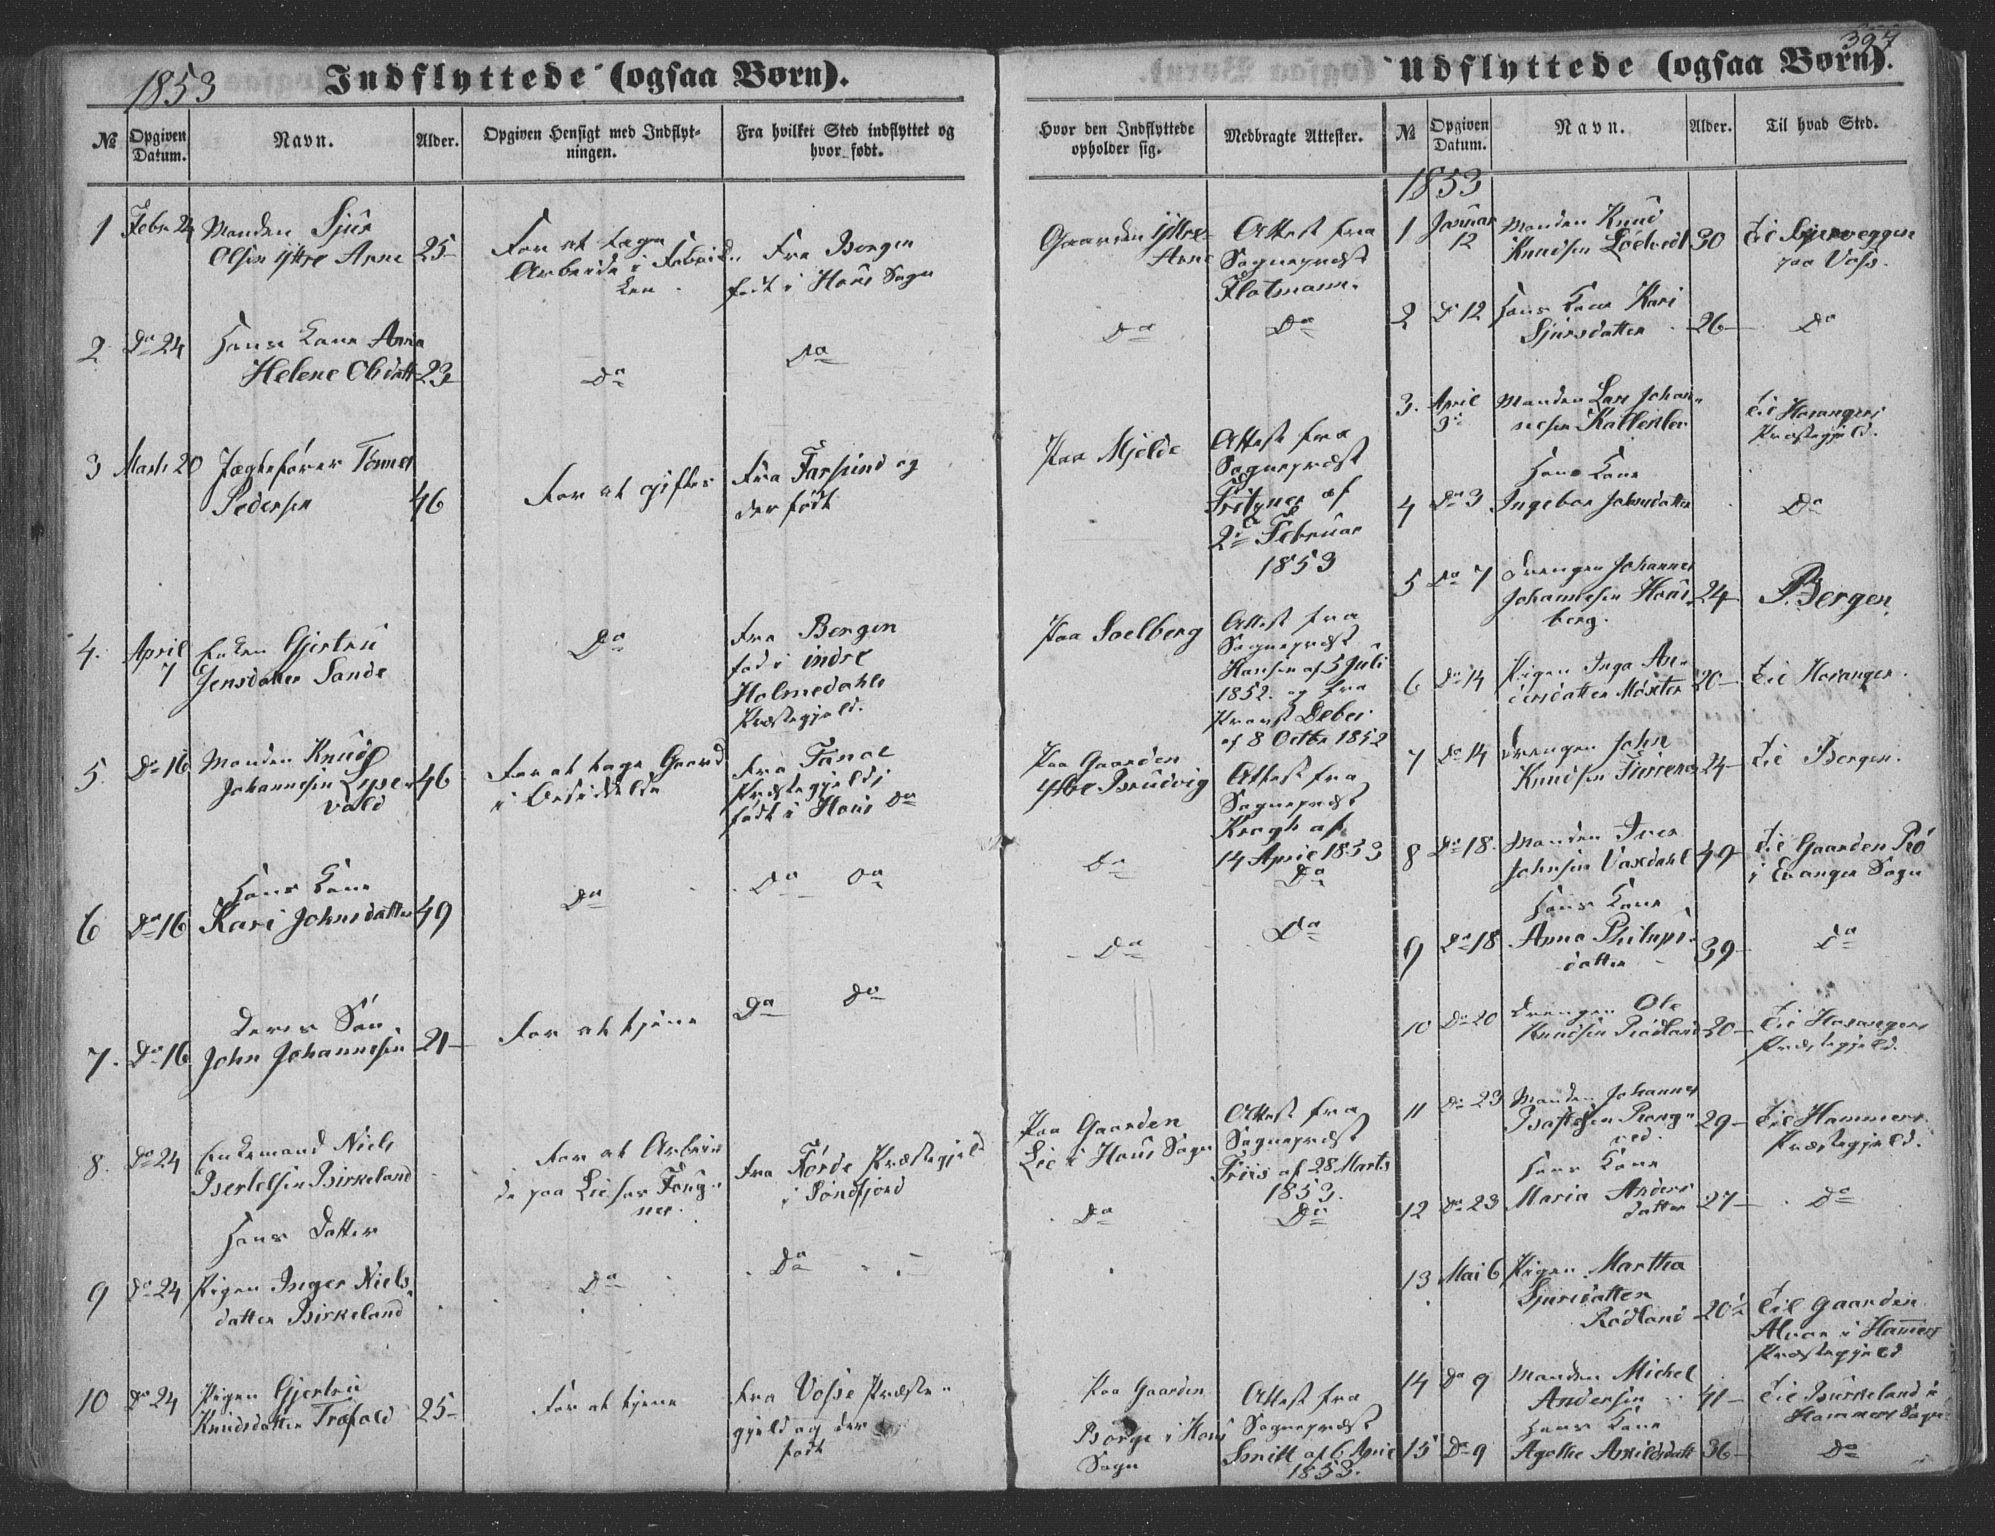 397
1853 Indflyttede (ogsaa Børn).
Udflyttede (ogsaa Børn).
№
Opgiven
Datum.
Navn.
Alder.
Opgiven Hensigt med Indflyt-
ningen.
Fra hvilket Sted indflyttet og
hvor født.
Hvor den Indflyttede
opholder sig.
Medbragte Attester.
1 Febr 24 Manden Sjur
Olsen Ytre Arne 25
For at tage
Arbeide i Fabrik-
ken.
Fra Bergen
født i Hous Sogn
Gaarden Ytre-
Arne
Attest fra
Sognepræst
Flotmann.
2 Do 24 Hans Kone Anna
Helene Olsdatt 23
Do
Do
Do
Do
3 Marts 20 Jægtefører Tønnes
Pedersen 46
For at giftes
Fra Farsund og
der født
Paa Mjelde
Attest fra
Sognepræst
Fritzner af
2 Februar
1853
4. April
7
Enken Gjertru
Jensdatter Sande
Do
Fra Bergen
fød i indre
Holmedahls
Præstegjeld.
Paa Soelberg
Attest fra
Sognepræst
Hansen af 5 Juli
1852. og fra
Provst Debes
af 8 Octbr 1852
5. Do 16 Manden Knud
Johannesen Lyse-
vold 46
For at tage Gaard
i Besiddelse
Fra Fane
Præstegjeld i
født i Hous Do
Paa Gaarden
Ytre Brudvig
Attest fra
Sognepræst
Krogh af
14 April 1853
6 Do 16 Hans Kone
Kari Johnsdatter 49
Do
Do Do
Do
Do
7. Do 16 Deres Søn
John Johannesen 21
For at tjene
Do Do
Do
Do
8. Do 24 Enkemand Niels
Bertelsen Birkeland
For at Arbei-
de paa Lie hos Foug-
ner.
Fra Førde Præstegjeld
i Søndfjord
Paa Gaarden
Lie i Hous Sogn
Attest fra
Sognepræst
Friis af 28 Marts
1853.
9 Do 24 Hans Datter
Pigen Inger Niels-
datter Birkeland
Do
Do
Do
Do
10 Do 24 Pigen Gjertru
Knudsdatter Træfald 25
For at tjene
Fra Vosse Præste-
gjeld og der
født
Paa Gaarden
Borge i Hous
Sogn
Attest fra
Sognepræst
Smitt af 6 April
1853.
№
Opgiven
Datum.
Navn.
Alder.
Til hvad Sted.
1853
1 Januar
12
Manden Knud
Knudsen Lødved 30
paa Voss.
2 Do 12 Hans Kone Kari
Sjursdatter 26 Do
3. April
3
Manden Lars Johan-
nesen
Til Hosangers
Præstegjeld.
4 Do 3 Hans Kone
Ingebor Johnsdatter Do
5 Do 7 Drengen Johannes
Johannesen Hous-
berg. 24
Bergen.
6 Do 14 Pigen Inga An-
dersdatter Møster 20 Til Hosanger.
7 Do 14 Drengen John
Knudsen 24 Til Bergen.
8 Do 18. Manden Iver
Johnsen Vaxdahl 49
Til Gaarden
i Evanger Sogn
9 Do 18 Hans Kone
Anna Philips-
datter 39 Do
10 Do 20 Drengen Ole
Knudsen Rødland 20
Til Hosangers
Præstegjeld.
11 Do 23 Manden Johannes
29
Til Hammers
Præstegjeld.
12 Do 23 Hans Kone
Maria Anders-
datter 27 Do
13 Mai 6 Pigen Martha
Sjursdatter
Rødland 20½
Til Gaarden
i Hammers
Præstegjeld
14 Do 9 Manden Michel
Andersen 41
Til Birkeland i
Hammers Sogn
15 Do 9 Hans Kone
Agathe Askildsdatt 36 Do